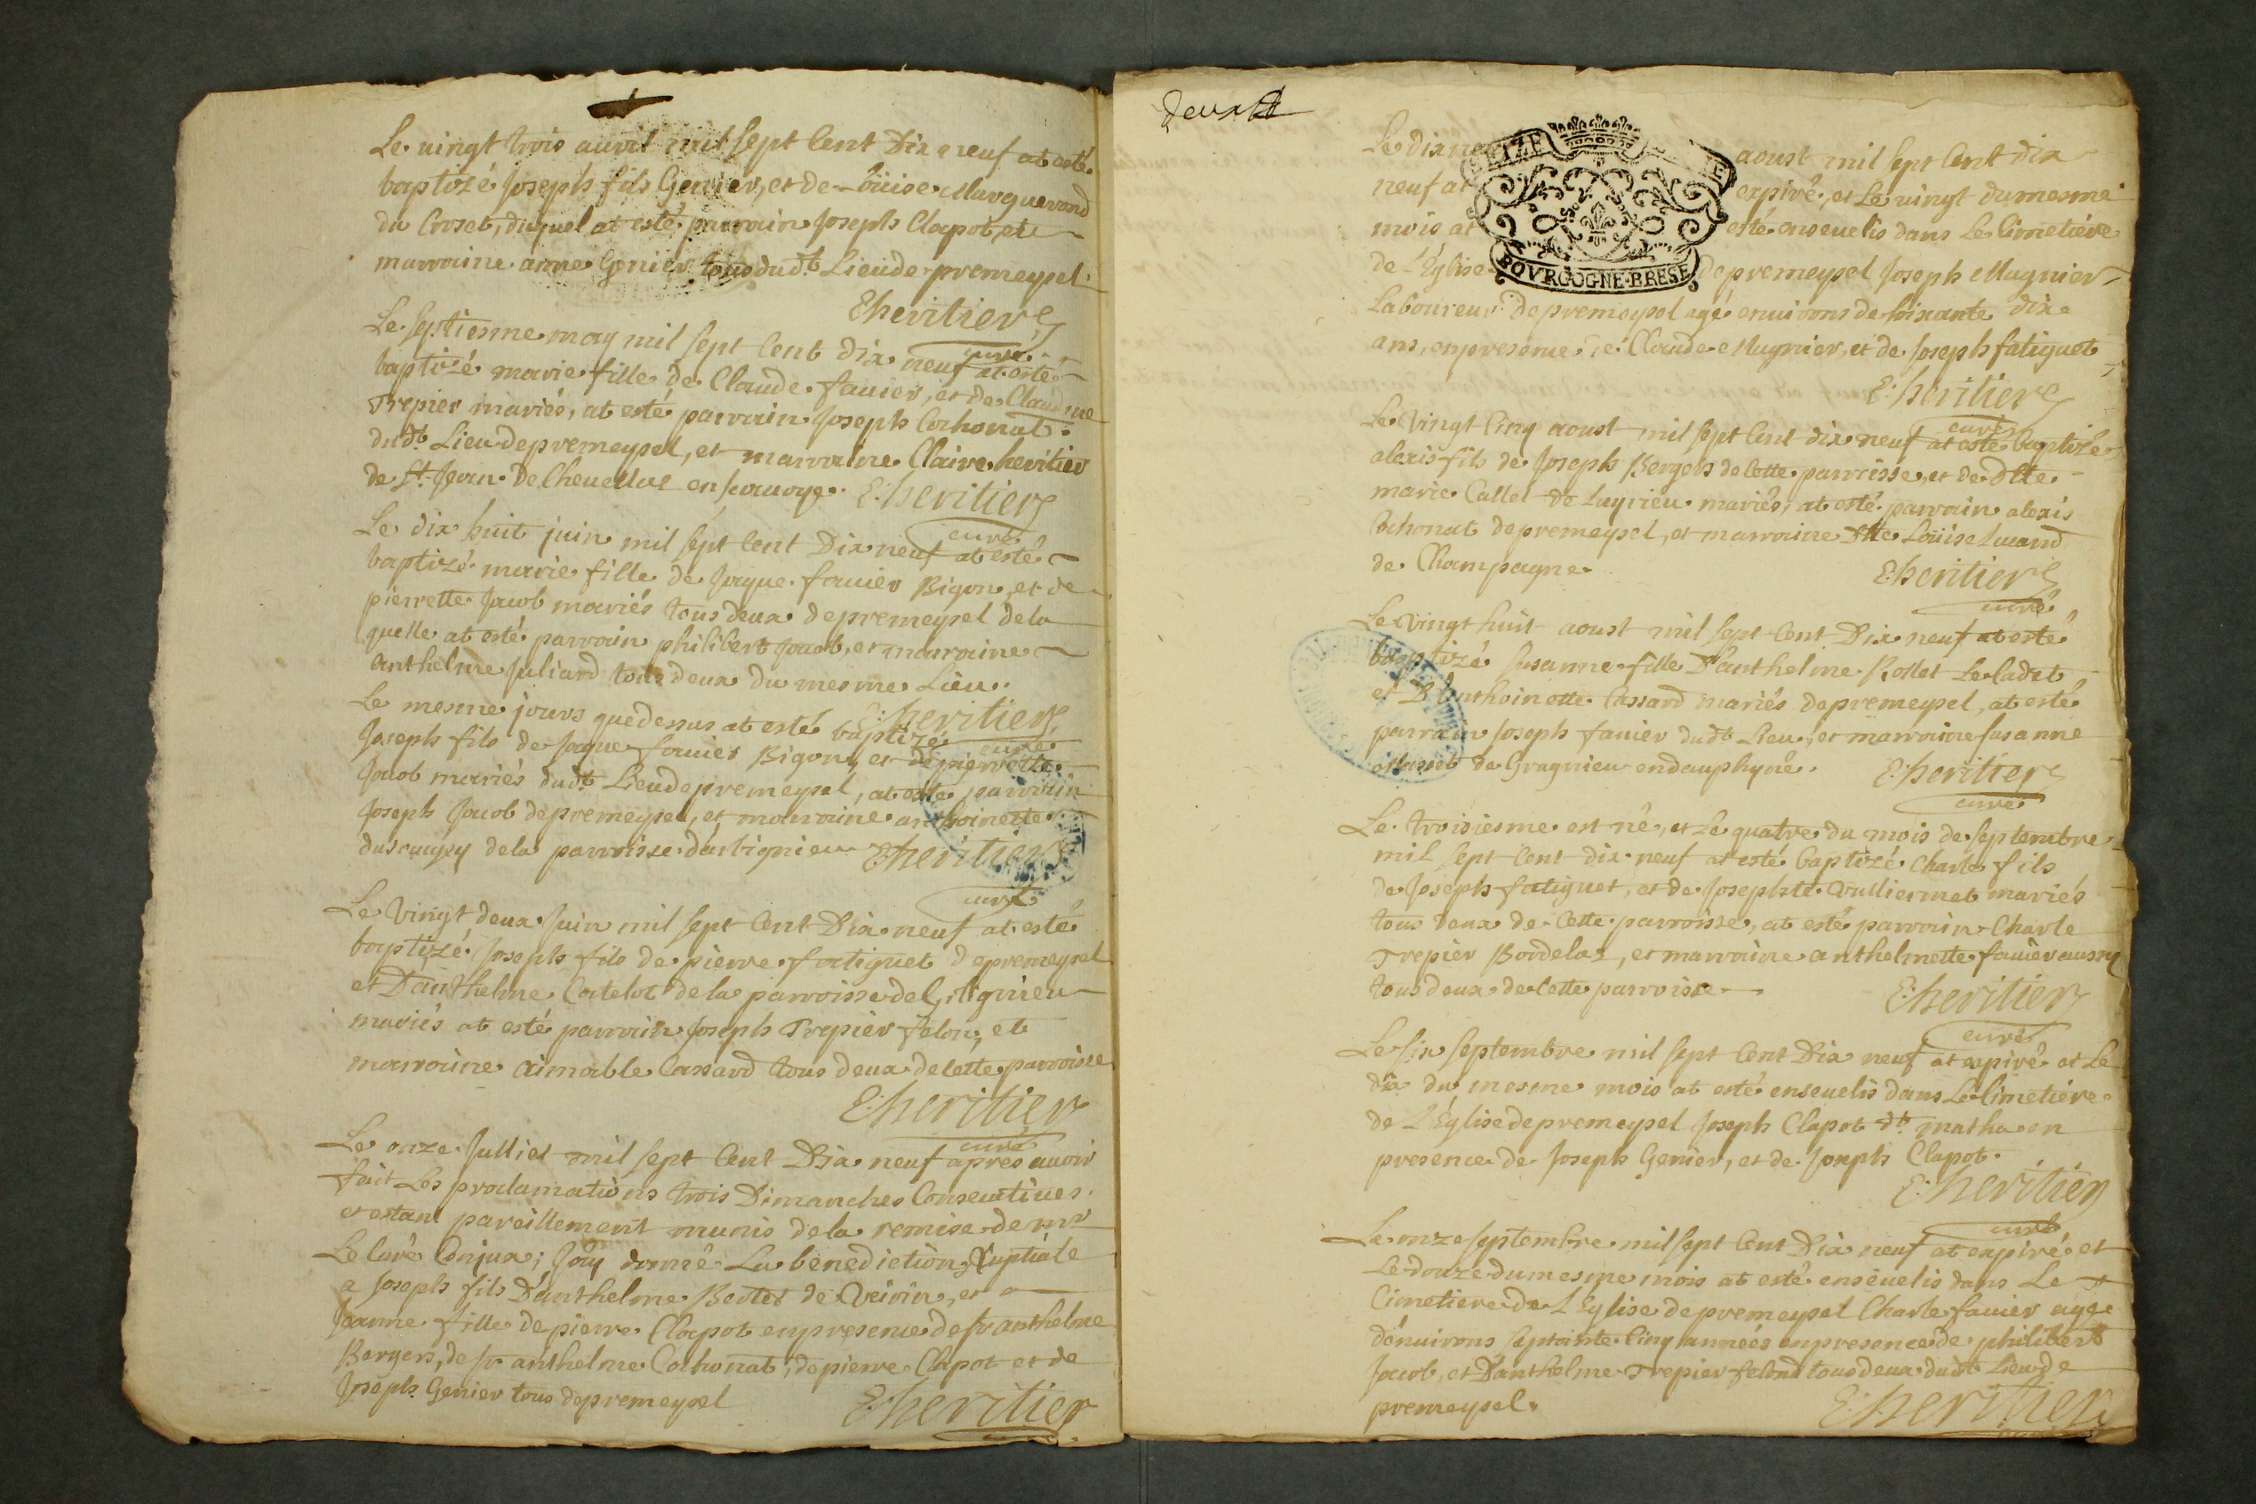 Le vingt trois auril mil sept Cent Dix neuf at esté
baptizé Joseph fils Genier, et de Loüise Marguerond
du Croset, duquel at esté parrain Joseph Clapot, et
marraine anne Genier tous dudt Lieu de premeysel.
E: heritier
curé
Le septiesme may mil sept Cent dix neuf at esté
baptizé marie fille de Claude fauier, et de Claudine
Trepier mariés, at esté parrain Joseph Cochonat
dudt Lieu de premeysel, et marraine Claire heritier
de St Jean De Cheuellue en sauoye. E: heritier
curé
Le dix huit juin mil sept Cent Dix neuf at esté
baptizé marie fille de Jaque fauier Bigon, et de
pierrette Jacob mariés tous deux de premeysel de la
quelle at esté parrain philibert Jacob, et marraine
anthelme Juliard tous deux du mesme Lieu.
E: heritier
curé
Le mesme jours que dessus at esté baptizé
Joseph fils de Jaque fauier Bigon, et de pierrette
Jacob mariés dudt Lieu de premeysel, at esté parrain
Joseph Jacob de premeysel, et marraine anthoinette
de la parroisse d'arbignieu E: heritier
curé
Le vingt deux Juin mil sept Cent Dix neuf at esté
baptizé Joseph fils de pierre fatiguet de premeysel
et D'anthelme Catelot de la parroisse de
mariés at esté parrain Joseph Trepier felon, et
marraine aimable Cassard tous deux de cette parroisse
E: heritier
curé
Le onze Julliet mil sept Cent Dix neuf après auoir
fait Les proclamations trois Dimanches Consecutiues
et estant pareillement munis de la remise de mr
Le Curé Conjux; J'ay donné La benediction Nuptiale
a Joseph fils D'anthelme Bottet de Veirin, et a
Jeanne fille de pierre Clapot en presence de sr anthelme
Bergers, de sr anthelme Cochonat, de pierre Clapot et de
Joseph Genier tous de premeysel E: heritier
Le dix neuf aoust mil sept Cent dix
neuf at expiré, et Le vingt du mesme
mois at esté enseuelis dans Le Cimetiére
de L'Église de premeysel Joseph Mugnier
Laboureur de premeysel agé enuirons de soixante dix
ans, en presence de Claude Mugnier, et de Joseph fatiguet
SEIZE
BOVRGOGNE·BRESE
E: heritier
curé
Le vingt Cinq aoust mil sept Cent dix neuf at esté baptizé
alexis fils de Joseph Bergers de Cette parroisse, et de dlle
marie Callet de Luyrieu mariés, at esté parrain alexis
Cochonat de premeysel, et marraine dlle Loüise Luand
de Champagne. E: heritier
curé
Le vingt huit aoust mil sept Cent Dix neuf at esté
baptizé susanne fille D'anthelme Rollet Le Cadet
et D'anthoinette Cassard mariés de premeysel, at esté
parrain Joseph fauier dudt Lieu, et marraine susanne
de Gragnieu en dauphyné. E: heritier
curé
Le troisiesme est né, et Le quatre du mois de septembre
mil sept Cent dix neuf at esté baptizé Charle fils
de Joseph fatiguet, et de Josephte Vulliermet mariés
tous deux de Cette parroisse, at esté parrain Charle
Trepier Bordelaz, et marraine anthelmette fauier aussy
tous deux de Cette parroisse E: heritier
curé
Le six septembre mil sept Cent Dix neuf at expiré et Le
dix du mesme mois at esté enseuelis dans Le Cimetiére
de L'Église de premeysel Joseph Clapot dt matha en
presence de Joseph Genier, et de Joseph Clapot.
E: heritier
curé
Le onze septembre mil sept Cent Dix neuf at expiré et
Le douze du mesme mois at esté enséuelis dans Le
Cimetiere de L'Eglise de premeysel Charle fauier agé
dénuirons septainte Cinq années en presence de philibert
Jacob, et D'anthelme Trepier felond tous deux dudt Lieu de
premeysel. E: heritier